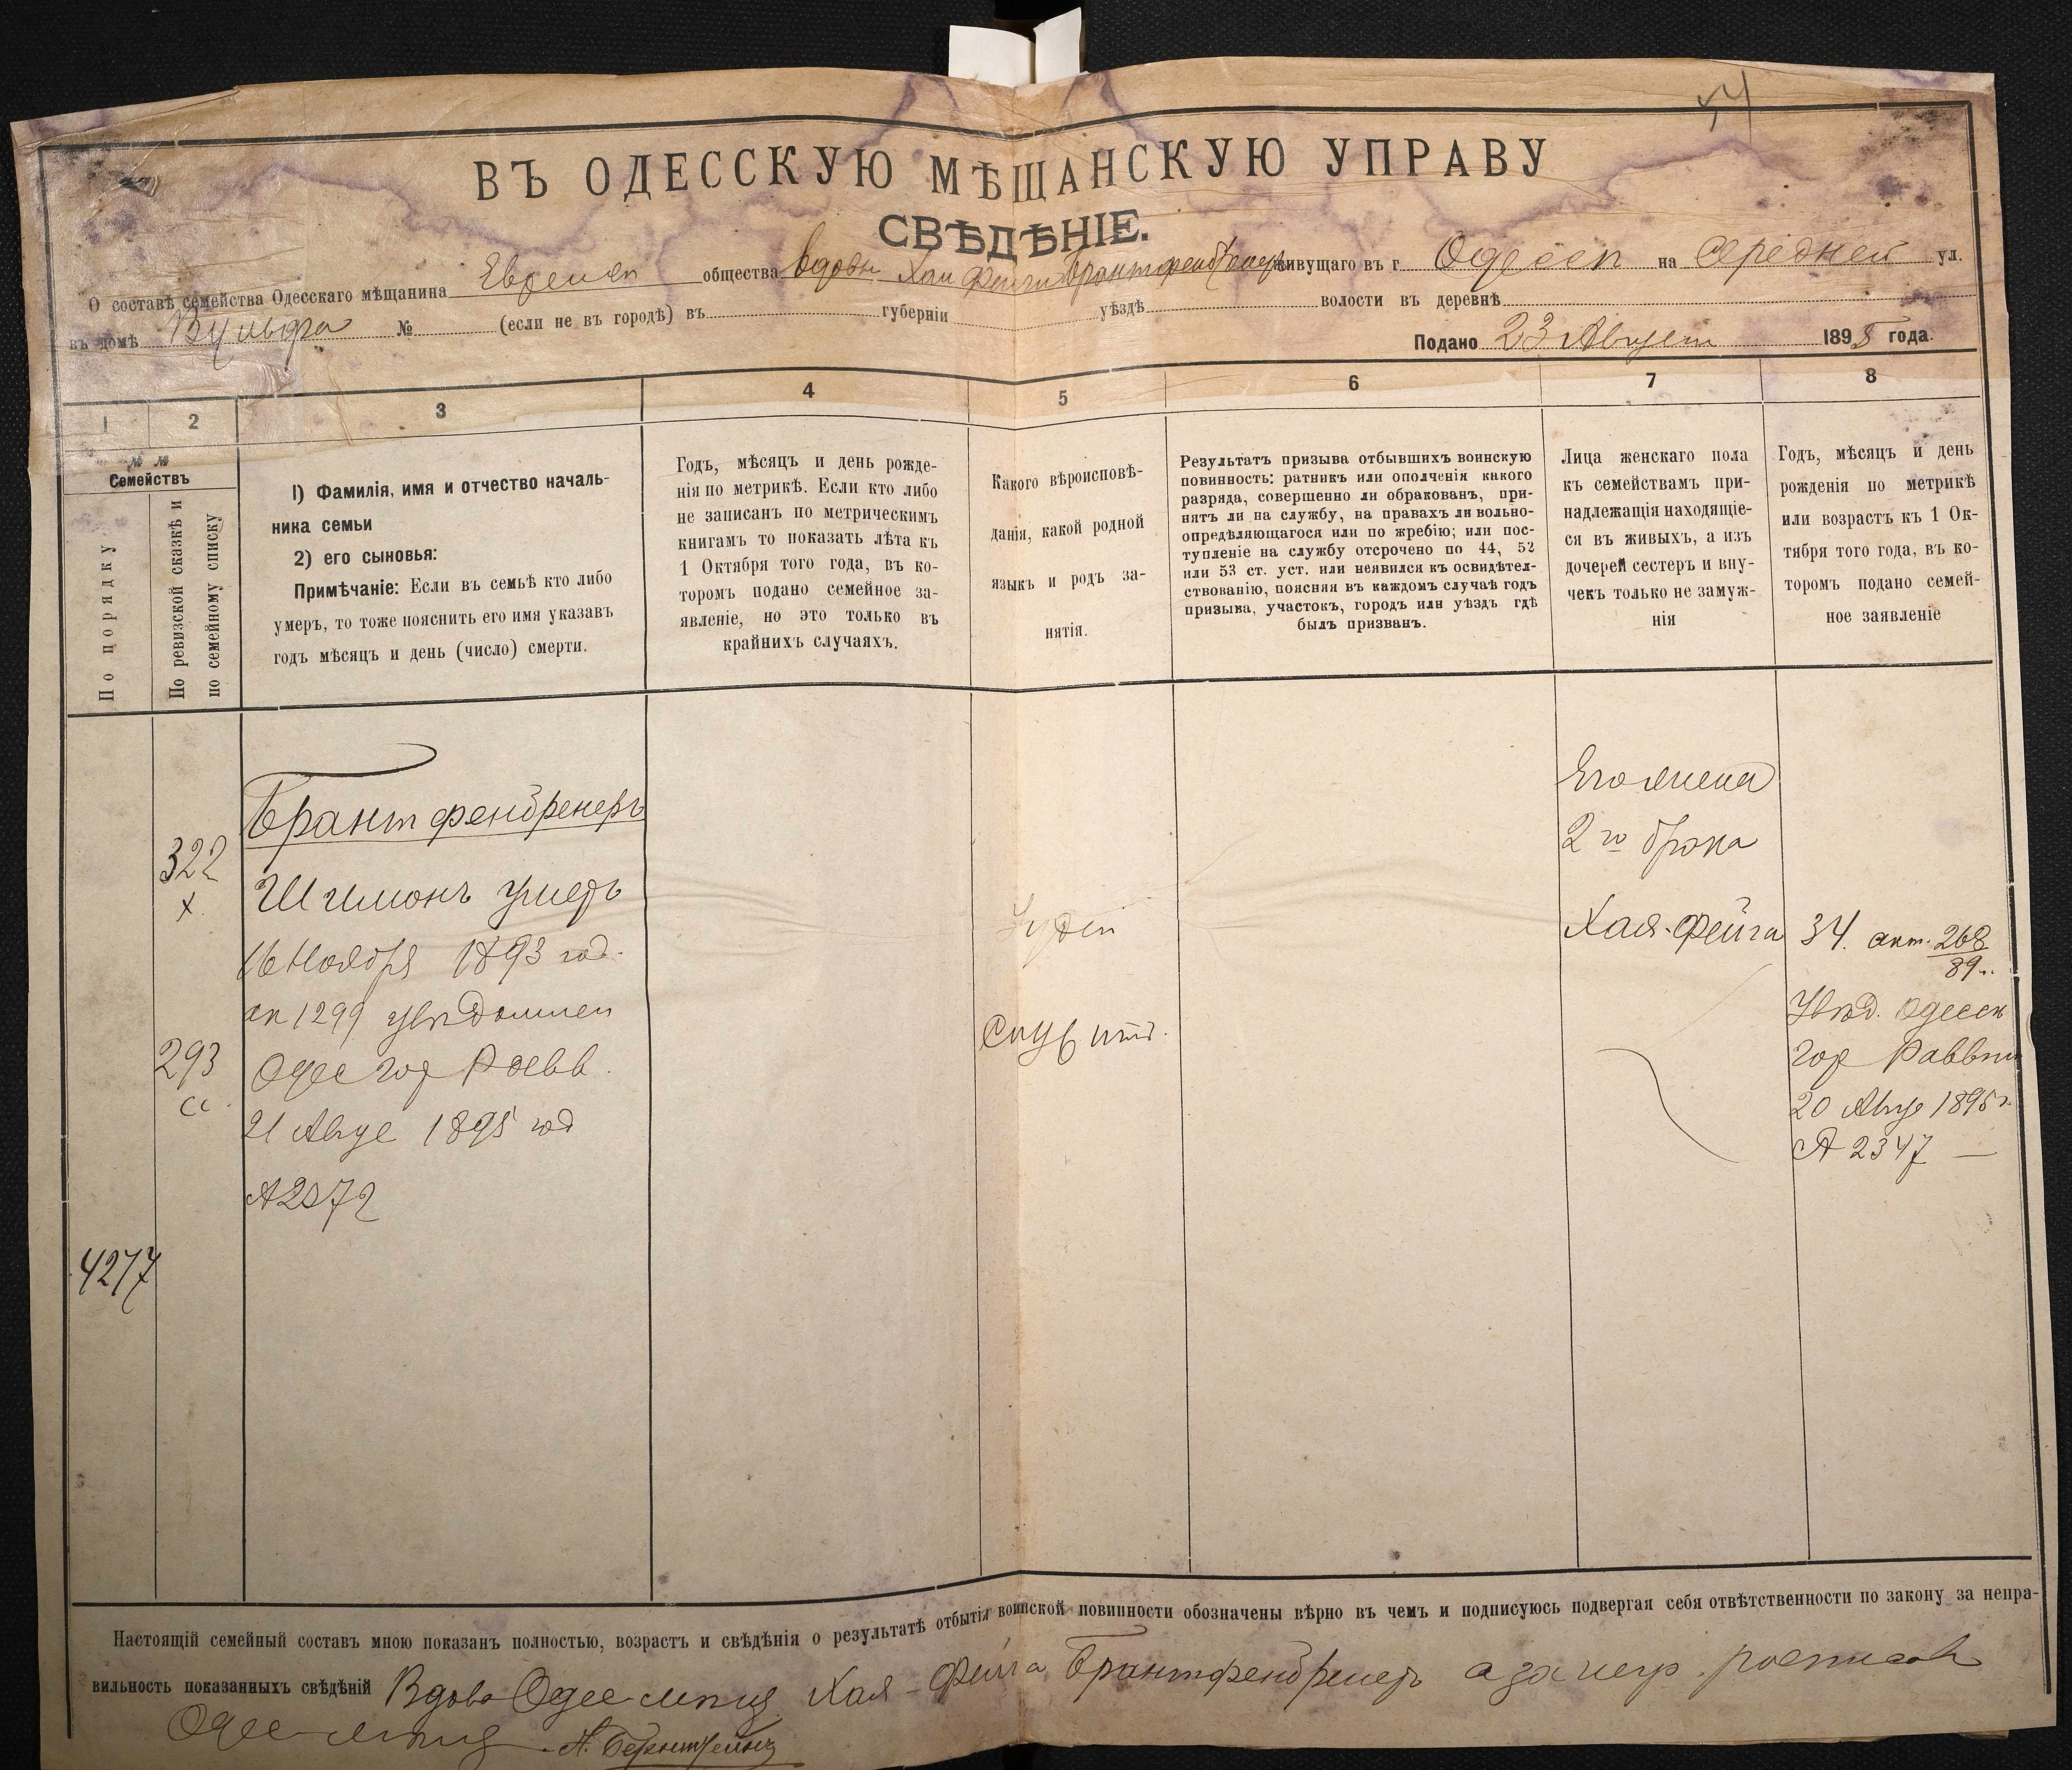 ВЪ ОДЕССКУЮ МѢЩАНСКУЮ УПРАВУ
СВѢДѢНІЕ.
О составѣ семейства Одесскаго мѣщанина Евреиск общества вдовы Хаи Фейги Брантфенбренеръ живущаго въ г Одессѣ на Средней ул.
въ домѣ Вульфа № (если не въ городѣ) въ губерніи уѣздѣ волости въ деревнѣ
Подано 23 Август 1895 года.
1 2 3 4 5 6 7 8
№ №
Семействъ
По порядку
По ревизской сказкѣ и
по семейному списку
1) Фамилія, имя и отчество началь-
ника семьи
2) его сыновья:
Примѣчаніе: Если въ семьѣ кто либо
умеръ, то тоже пояснить его имя указавъ
годъ мѣсяцъ и день (число) смерти.
Годъ, мѣсяцъ и день рожде-
нія по метрикѣ. Если кто либо
не записанъ по метрическимъ
книгамъ то показать лѣта къ
1 Октября того года, въ ко-
торомъ подано семейное за-
явленіе, но это только въ
крайнихъ случаяхъ.
Какого вѣроисповѣ-
данія, какой родной
языкъ и родъ за-
нятія.
Результатъ призыва отбывшихъ воинскую
повинность: ратникъ или ополченія какого
разряда, совершенно ли обракованъ, при-
нятъ ли на службу, на правахъ ли вольно-
опредѣляющагося или по жребію; или пос-
тупленіе на службу отсрочено по 44, 52
или 53 ст. уст. или неявился къ освидѣтел-
ствованію, поясняя въ каждомъ случаѣ годъ
призыва, участокъ, городъ или уѣздъ гдѣ
былъ призванъ.
Лица женскаго пола
къ семействамъ при-
надлежащія находящіе-
ся въ живыхъ, а изъ
дочерей сестеръ и вну-
чекъ только не замуж-
нія
Годъ, мѣсяцъ и день
рожденія по метрикѣ
или возрастъ къ 1 Ок-
тября того года, въ ко-
торомъ подано семей-
ное заявленіе
322
х
293
сс
4277
Брантфенбренеръ
Шимонъ умеръ
16 Ноября 1893 год.
ак 1299 увѣдомлен
Одес гор Равв.
21 Авгус 1895 год
№ 2372
Іудей
Служит.
Его жена
2го брака
Хая-Фейга
34. акт. 268
89 г.
Увѣд. Одесск
гор Раввин
20 Авгус 1895 г.
№ 2347 —
Настоящій семейный составъ мною показанъ полностью, возрастъ и свѣдѣнія о результатѣ отбытія воинской повинности обозначены вѣрно въ чемъ и подписуюсь подвергая себя отвѣтственности по закону за непра-
вильность показанныхъ свѣдѣній Вдова Одес мѣщ Хая-Фейга Брантфенбренеръ а за негр. росписався
Одес мѣщ А. Бернштейнъ